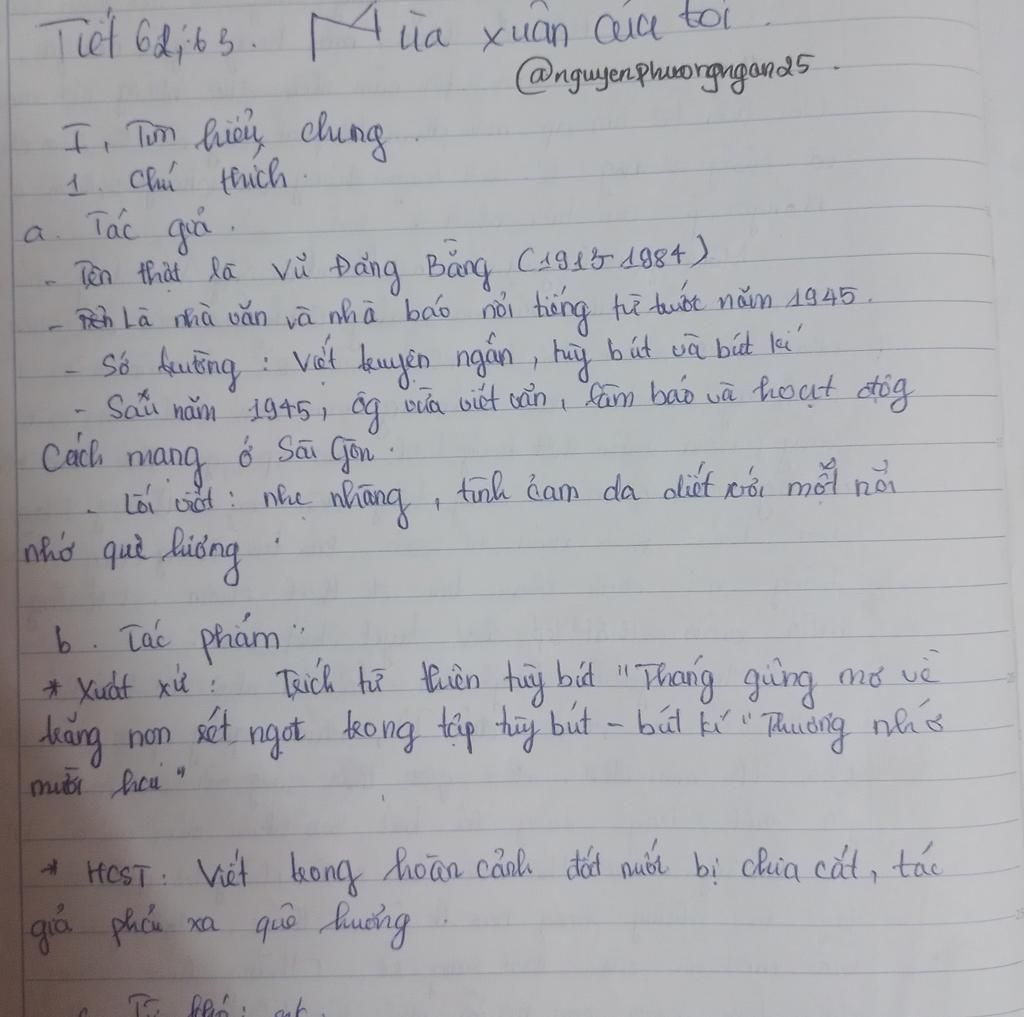 Tiết 62,63. Mùa xuân của tôi.
@nguyenphuongngan25.
I, Tìm hiểu chung.
1. Chú thích.
a. Tác giả.
- Tên thật là Vũ Đăng Bằng (1913-1984)
- Là nhà văn và nhà báo nổi tiếng từ trước năm 1945.
- Sở trường: Viết truyện ngắn, tùy bút và bút kí
- Sau năm 1945, ôg vừa viết văn, làm báo và hoạt độg
Cách mạng ở Sài Gòn.
- Lối viết: nhẹ nhàng, tình cảm da diết với một nỗi
nhớ quê hương.
b. Tác phẩm:
* Xuất xứ: Trích từ thiên tùy bút "Tháng giêng mơ về
trăng non rét ngọt trong tập tùy bút - bút kí "Thương nhớ
mười hai"
* HCST: Viết trong hoàn cảnh đất nước bị chia cắt, tác
giả phải xa quê hương.